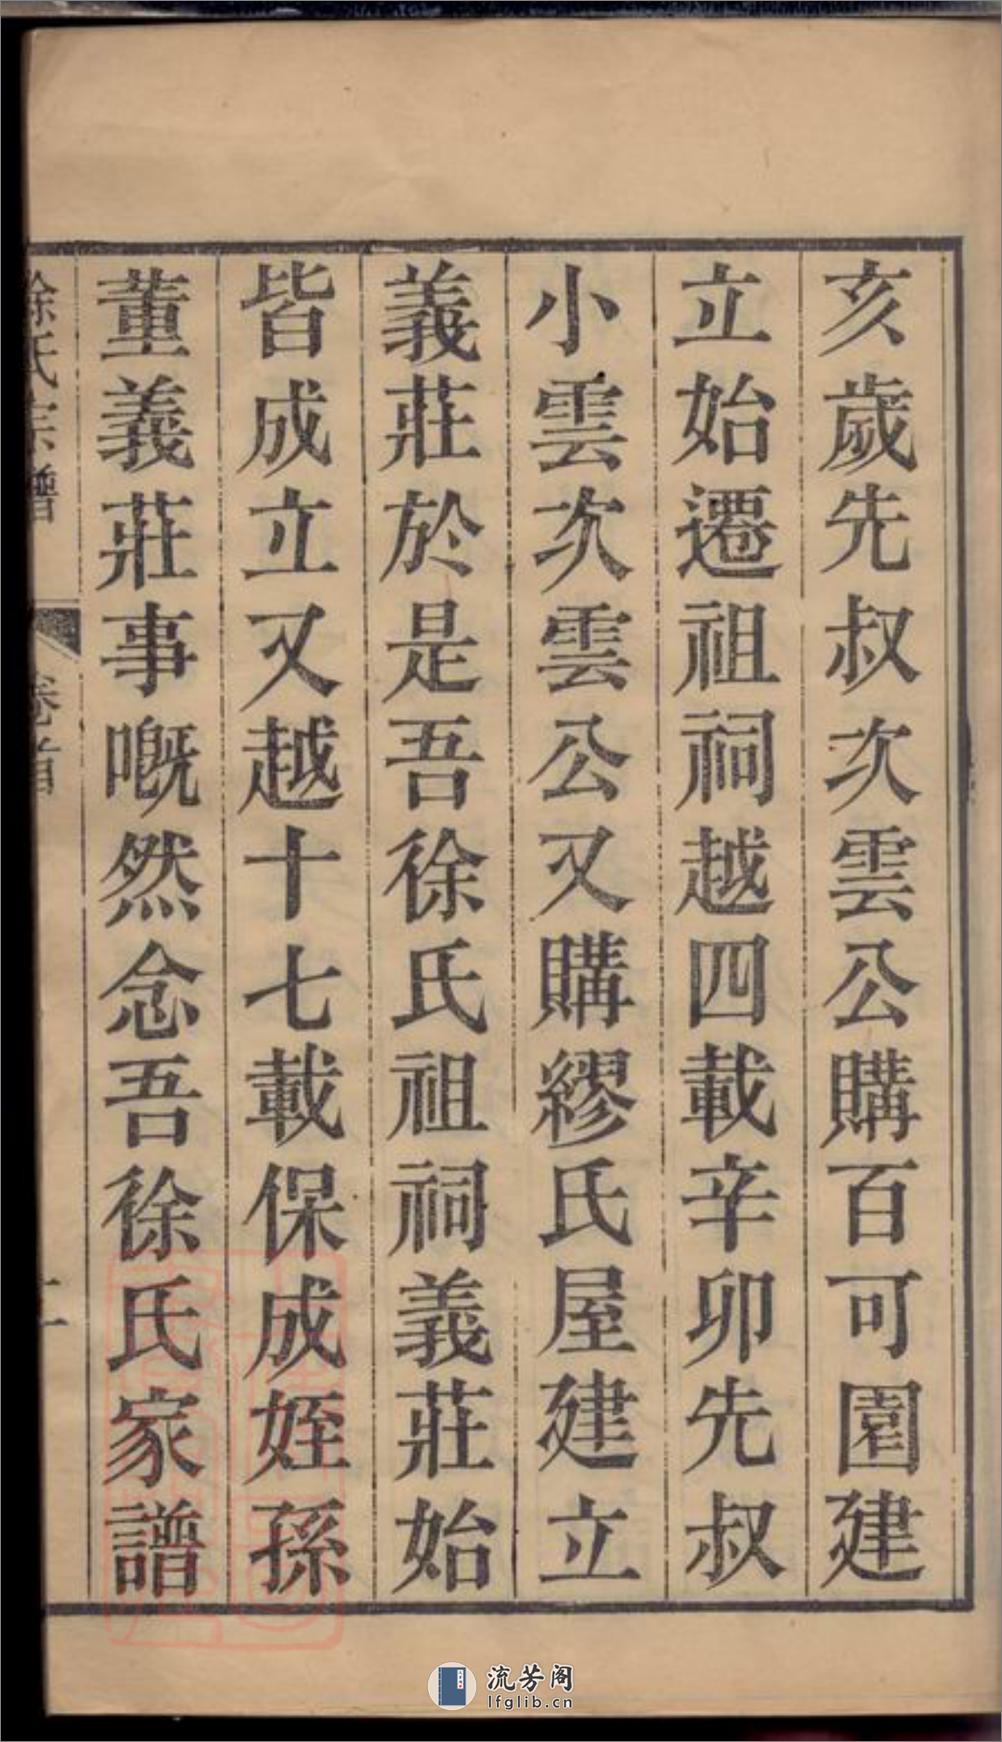 亥歲先叔次雲公購百可園建
立始遷祖祠越四載辛卯先叔
小雲次雲公又購繆氏屋建立
義莊於是吾徐氏祖祠義莊始
皆成立又越十七載保成姪孫
董義莊事嘅然念吾徐氏家譜
徐氏宗譜 卷首
流芳阁
lfglib.cn